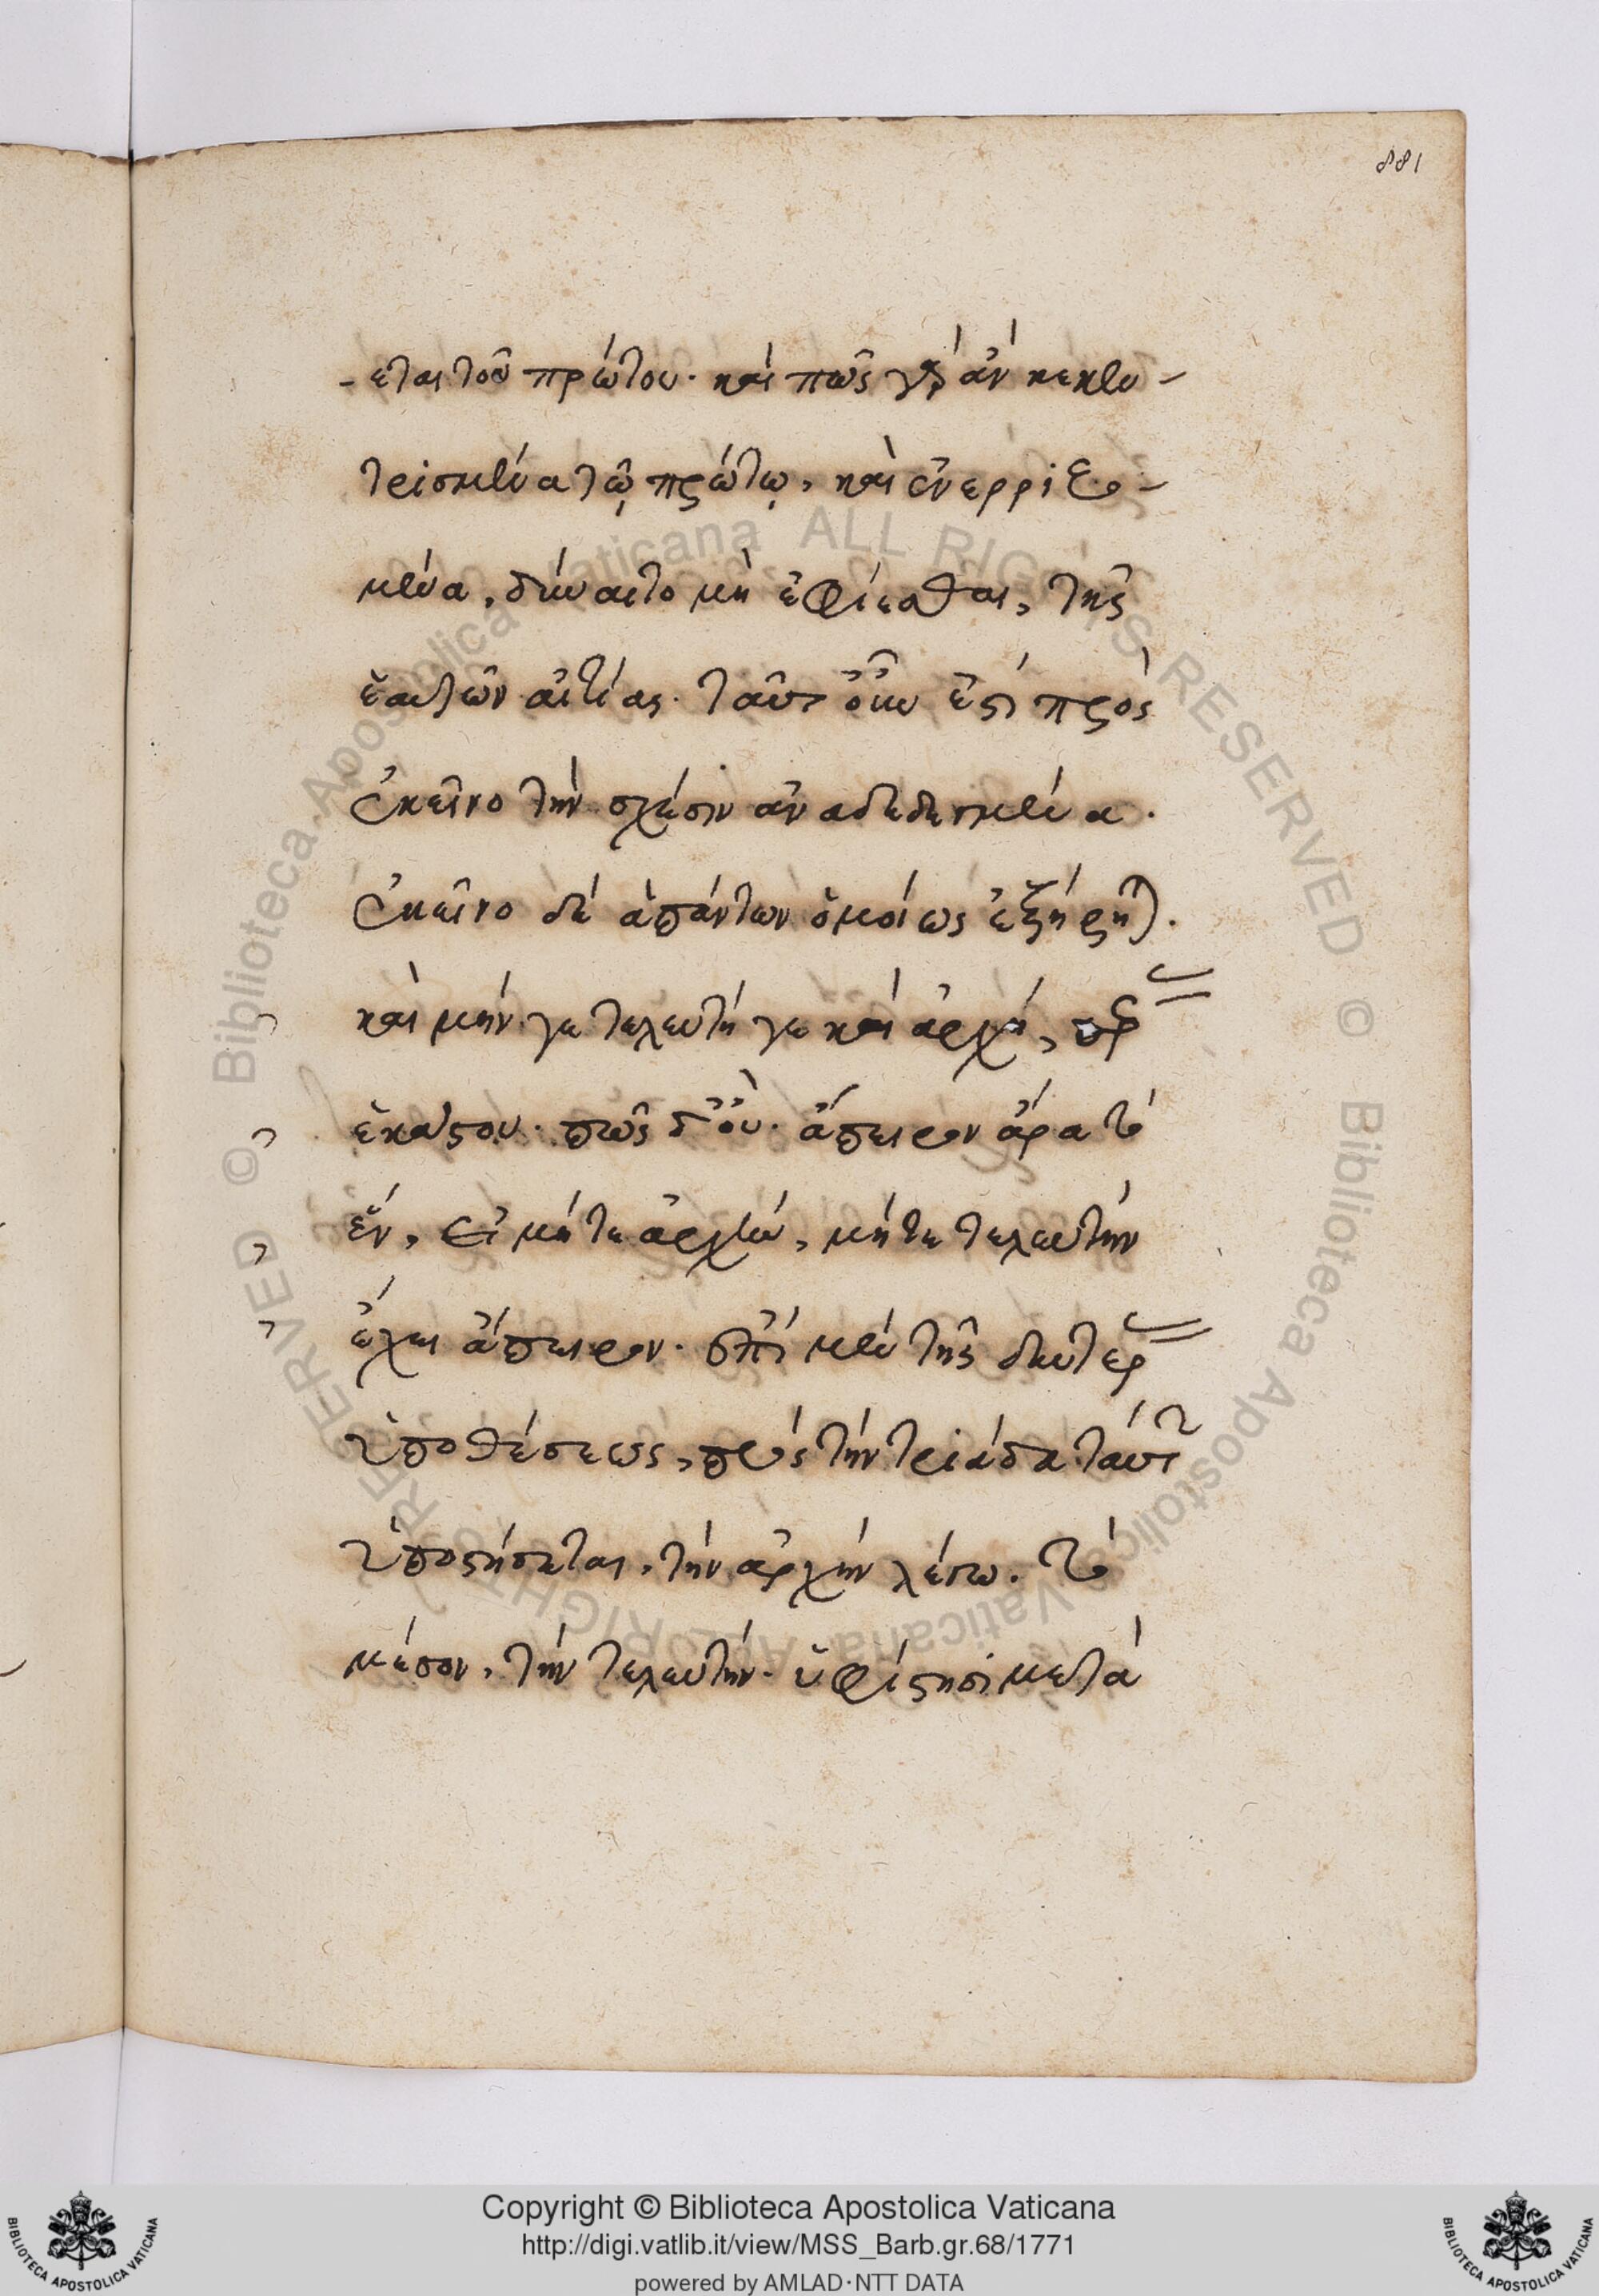 881
-εται τοῦ πρώτου· καὶ πῶς γὰρ ἂν κεκεν-
τρισμένα τῷ πρώτῳ, καὶ ἐνερριζω-
μένα, δύναιτο μὴ ἐφίεσθαι, τῆς
ἑαυτῶν αἰτίας. ταῦτ οὖν ἐστὶ πρὸς
ἐκεῖνο τὴν σχέσιν ἀναδεδεγμένα.
ἐκεῖνο δὲ ἁπάντων ὁμοίως ἐξήρηται.
καὶ μήν γε τελευτή γε καὶ ἀρχή, πέρας
ἑκάστου. πῶς δ' οὔ. ἄπειρον ἄρα τὸ
ἕν, εἰ μήτε ἀρχήν, μήτε τελευτὴν
ἔχει ἄπειρον. ἐπὶ μὲν τῆς δευτέρας
ὑποθέσεως, πρὸς τὴν τριάδα ταύτην
ὑποστήσεται, τὴν ἀρχὴν λέγω. τὸ
μέσον, τὴν τελευτήν. ὑφίστησι μετὰ
Copyright © Biblioteca Apostolica Vaticana
http://digi.vatlib.it/view/MSS_Barb.gr.68/1771
powered by AMLAD·NTT DATA
BIBLIOTECA APOSTOLICA VATICANA
BIBLIOTECA APOSTOLICA VATICANA
© Biblioteca Apostolica Vaticana ALL RIGHTS RESERVED © Biblioteca Apostolica Vaticana ALL RIGHTS RESERVED